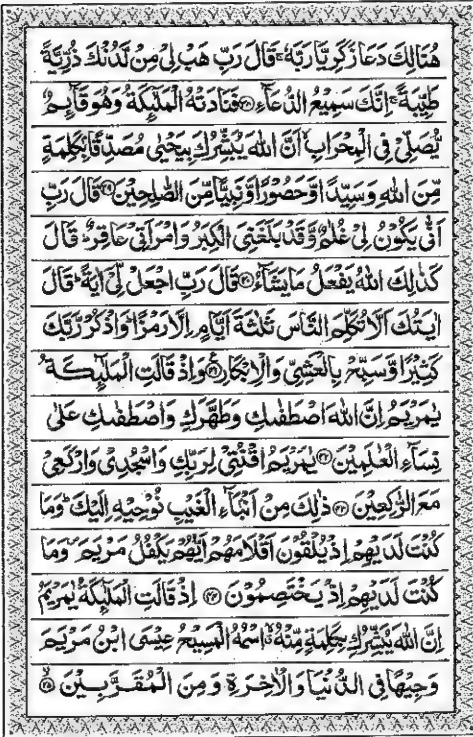 هُنَالِكَ دَعَا زَكَرِيَّا رَبَّهٗ ۚ قَالَ رَبِّ هَبْ لِیْ مِنْ لَّدُنْكَ ذُرِّیَّةً
طَیِّبَةً ۚ اِنَّكَ سَمِیْعُ الدُّعَآءِ ﴿۳۸﴾ فَنَادَتْهُ الْمَلٰٓىِٕكَةُ وَهُوَ قَآىِٕمٌ
یُّصَلِّیْ فِی الْمِحْرَابِ ۙ اَنَّ اللّٰهَ یُبَشِّرُكَ بِیَحْیٰی مُصَدِّقًۢا بِكَلِمَةٍ
مِّنَ اللّٰهِ وَسَیِّدًا وَّحَصُوْرًا وَّنَبِیًّا مِّنَ الصّٰلِحِیْنَ ﴿۳۹﴾ قَالَ رَبِّ
اَنّٰی یَكُوْنُ لِیْ غُلٰمٌ وَّقَدْ بَلَغَنِیَ الْكِبَرُ وَامْرَاَتِیْ عَاقِرٌ ؕ قَالَ
كَذٰلِكَ اللّٰهُ یَفْعَلُ مَا یَشَآءُ ﴿۴۰﴾ قَالَ رَبِّ اجْعَلْ لِّیْۤ اٰیَةً ؕ قَالَ
اٰیَتُكَ اَلَّا تُكَلِّمَ النَّاسَ ثَلٰثَةَ اَیَّامٍ اِلَّا رَمْزًا ؕ وَاذْكُرْ رَّبَّكَ
كَثِیْرًا وَّسَبِّحْ بِالْعَشِیِّ وَالْاِبْكَارِ ﴿۴۱﴾ وَاِذْ قَالَتِ الْمَلٰٓىِٕكَةُ
یٰمَرْیَمُ اِنَّ اللّٰهَ اصْطَفٰىكِ وَطَهَّرَكِ وَاصْطَفٰىكِ عَلٰی
نِسَآءِ الْعٰلَمِیْنَ ﴿۴۲﴾ یٰمَرْیَمُ اقْنُتِیْ لِرَبِّكِ وَاسْجُدِیْ وَارْكَعِیْ
مَعَ الرّٰكِعِیْنَ ﴿۴۳﴾ ذٰلِكَ مِنْ اَنْۢبَآءِ الْغَیْبِ نُوْحِیْهِ اِلَیْكَ ؕ وَمَا
كُنْتَ لَدَیْهِمْ اِذْ یُلْقُوْنَ اَقْلَامَهُمْ اَیُّهُمْ یَكْفُلُ مَرْیَمَ ۪ وَمَا
كُنْتَ لَدَیْهِمْ اِذْ یَخْتَصِمُوْنَ ﴿۴۴﴾ اِذْ قَالَتِ الْمَلٰٓىِٕكَةُ یٰمَرْیَمُ
اِنَّ اللّٰهَ یُبَشِّرُكِ بِكَلِمَةٍ مِّنْهُ ۖ اسْمُهُ الْمَسِیْحُ عِیْسَی ابْنُ مَرْیَمَ
وَجِیْهًا فِی الدُّنْیَا وَالْاٰخِرَةِ وَمِنَ الْمُقَرَّبِیْنَ ﴿۴۵﴾